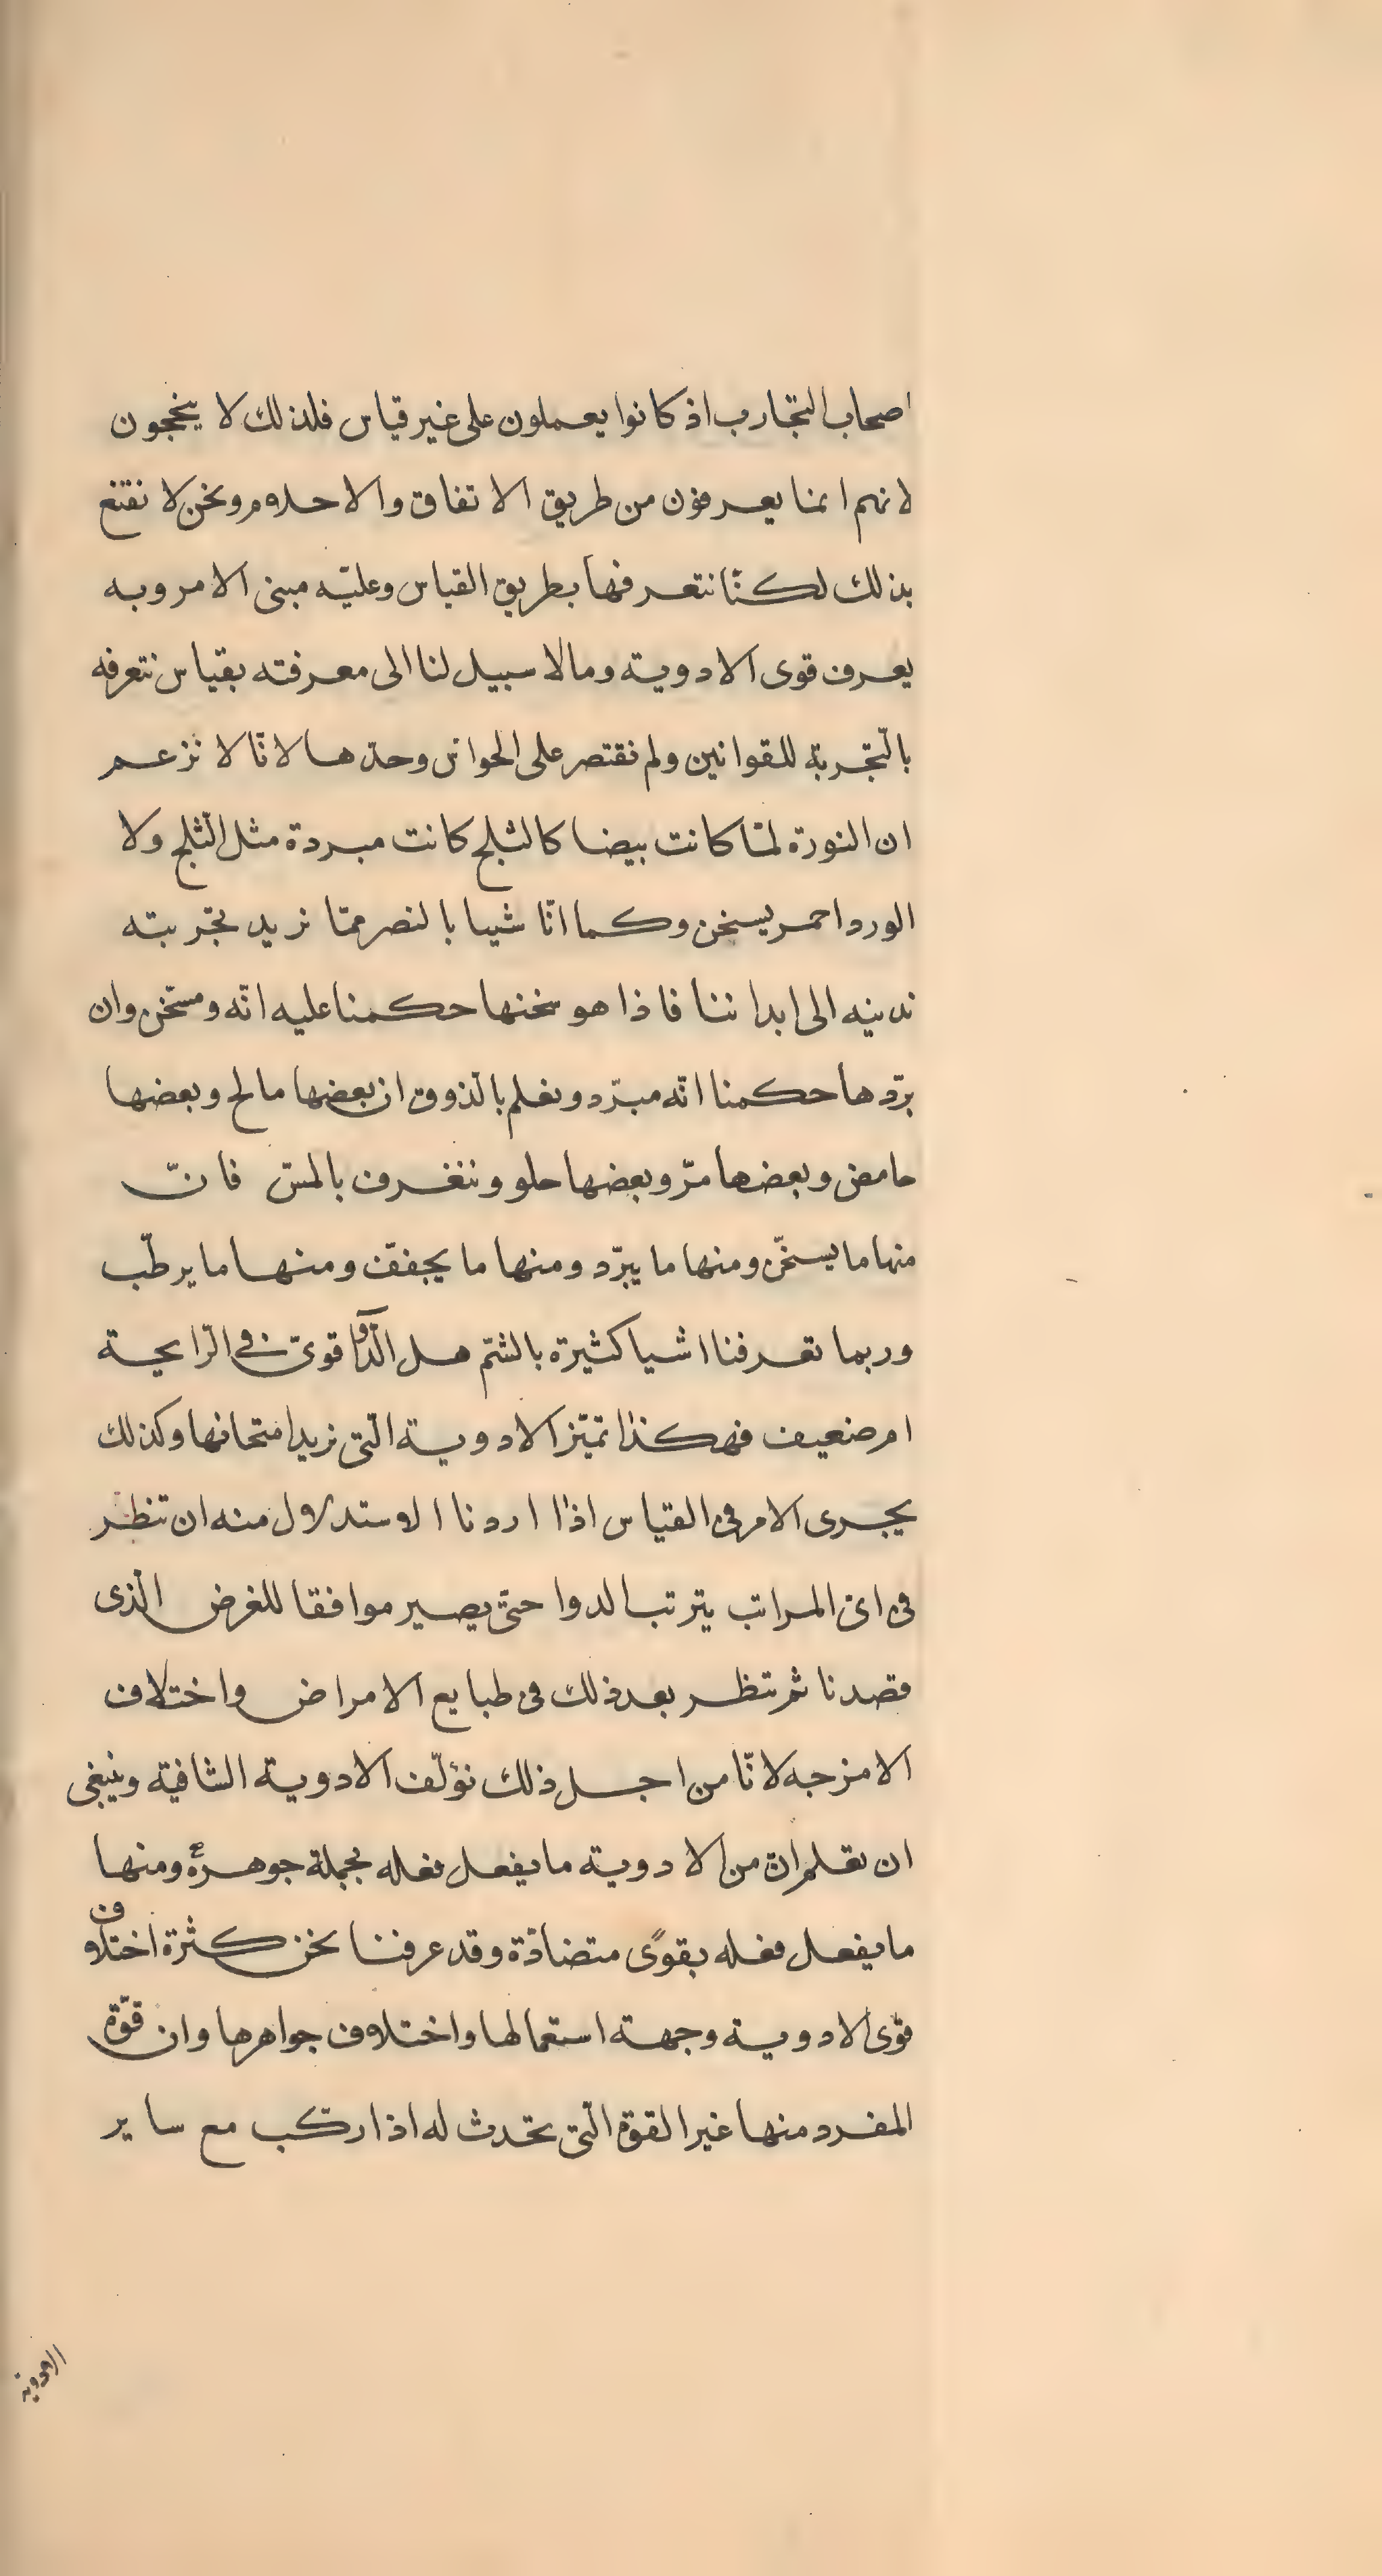 اصحاب التجّارب اذ كانوا يعملون على غير قياس فلذلك لا ينجحون
لانهم انما يعرفون من طريق الاتفاق والاحلام ونحن لا نقتنع
بذلك لكنّا نتعرفها بطريق القياس وعليّه مبنى الامر وبه
يعرف قوى الادوية ومالا سبيل لنا الى معرفته بقياس نتعرفه
بالتّجربة للقوانين ولم نقتصر على الحواسّ وحدها لانّا لا نزعم
ان النورة لمّا كانت بيضا كالثلج كانت مبردة مثل الثّلج ولا
الورد احمر يسخن وكما انّا شيا بالنصر ممّا نريد تجّربته
ندنيه الى ابداننا فاذا هو سخنها حكمنا عليه انّه ومسّخن وان
برّدها حكمنا انّه مبرّد ونعلم بالذّوق ان بعضها مالح وبعضها
حامض وبعضها مرّ وبعضها حلو ونتغرف بالمسّ فانّ
منها ما يسخّن ومنها ما يبرّد ومنها ما يجفّف ومنها ما يرطّب
وربما تعرفنا اشيا كثيرة بالشّم هل الدّوآ قوىّ فى الرّايحة
ام ضعيف فهكذا تميّز الادوية الّتى نريد امتحانها وكذلك
يجرى الامر فى القياس اذا اردنا الاوستدلال منه ان تنظر
فى اىّ المراتب يترتب الدوا حتّى يصير موافقا للغرض الّذى
قصدنا ثم تنظر بعد ذلك فى طبايع الامراض واختلاف
الامزجه لانّا من اجل ذلك نؤلّف الادوية الشافية وينبغى
ان تعلم انّ من الادوية ما يفعل فعله بجملة جوهره ومنها
ما يفعل فعله بقوًى متضادّة وقد عرفنا نحن كثرة اختلاف
قوى الادوية وجهة استعمالها واختلاف جواهرها وان قوّة
المفرد منها غير القوّة الّتى تحدث له اذا ركّب مع ساير
الادوية